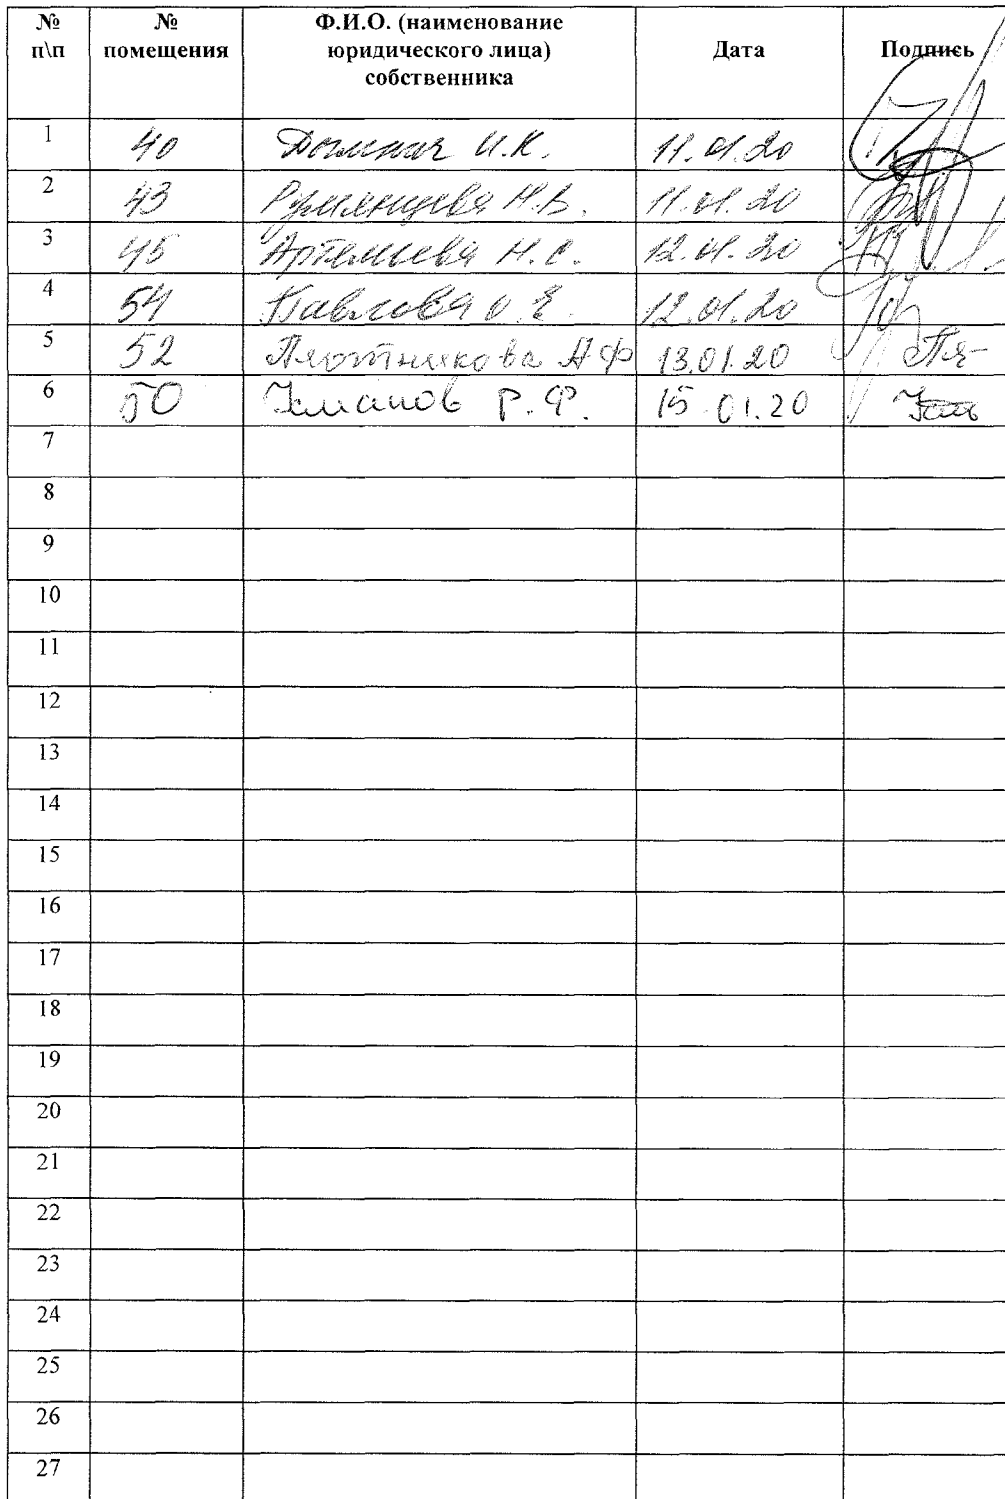 № п\п № помещения Ф.И.О. (наименование юридического лица) собственника Дата Подпись
1 40 И.К. 11.01.20
2 43 Румянцева Н.В. 11.01.20
3 45 Артемьева Н.С. 12.01.20
4 54 Павлова О.Е. 12.01.20
5 52 Плотникова А Ф 13.01.20
6 50 Усманов Р.Ф. 15.01.20
7
8
9
10
11
12
13
14
15
16
17
18
19
20
21
22
23
24
25
26
27